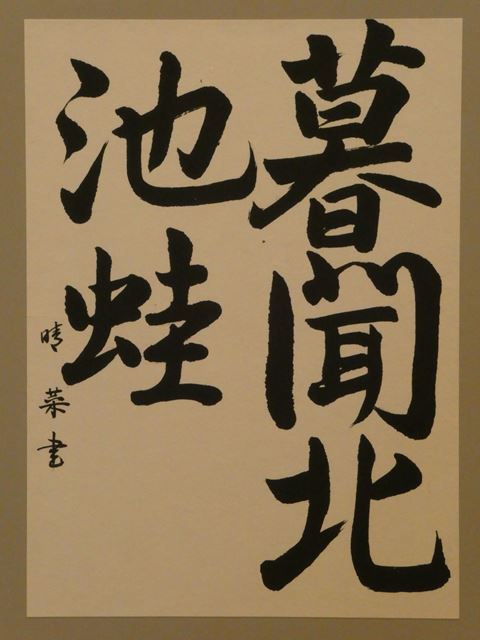 暮聞北
池蛙
晴菜書